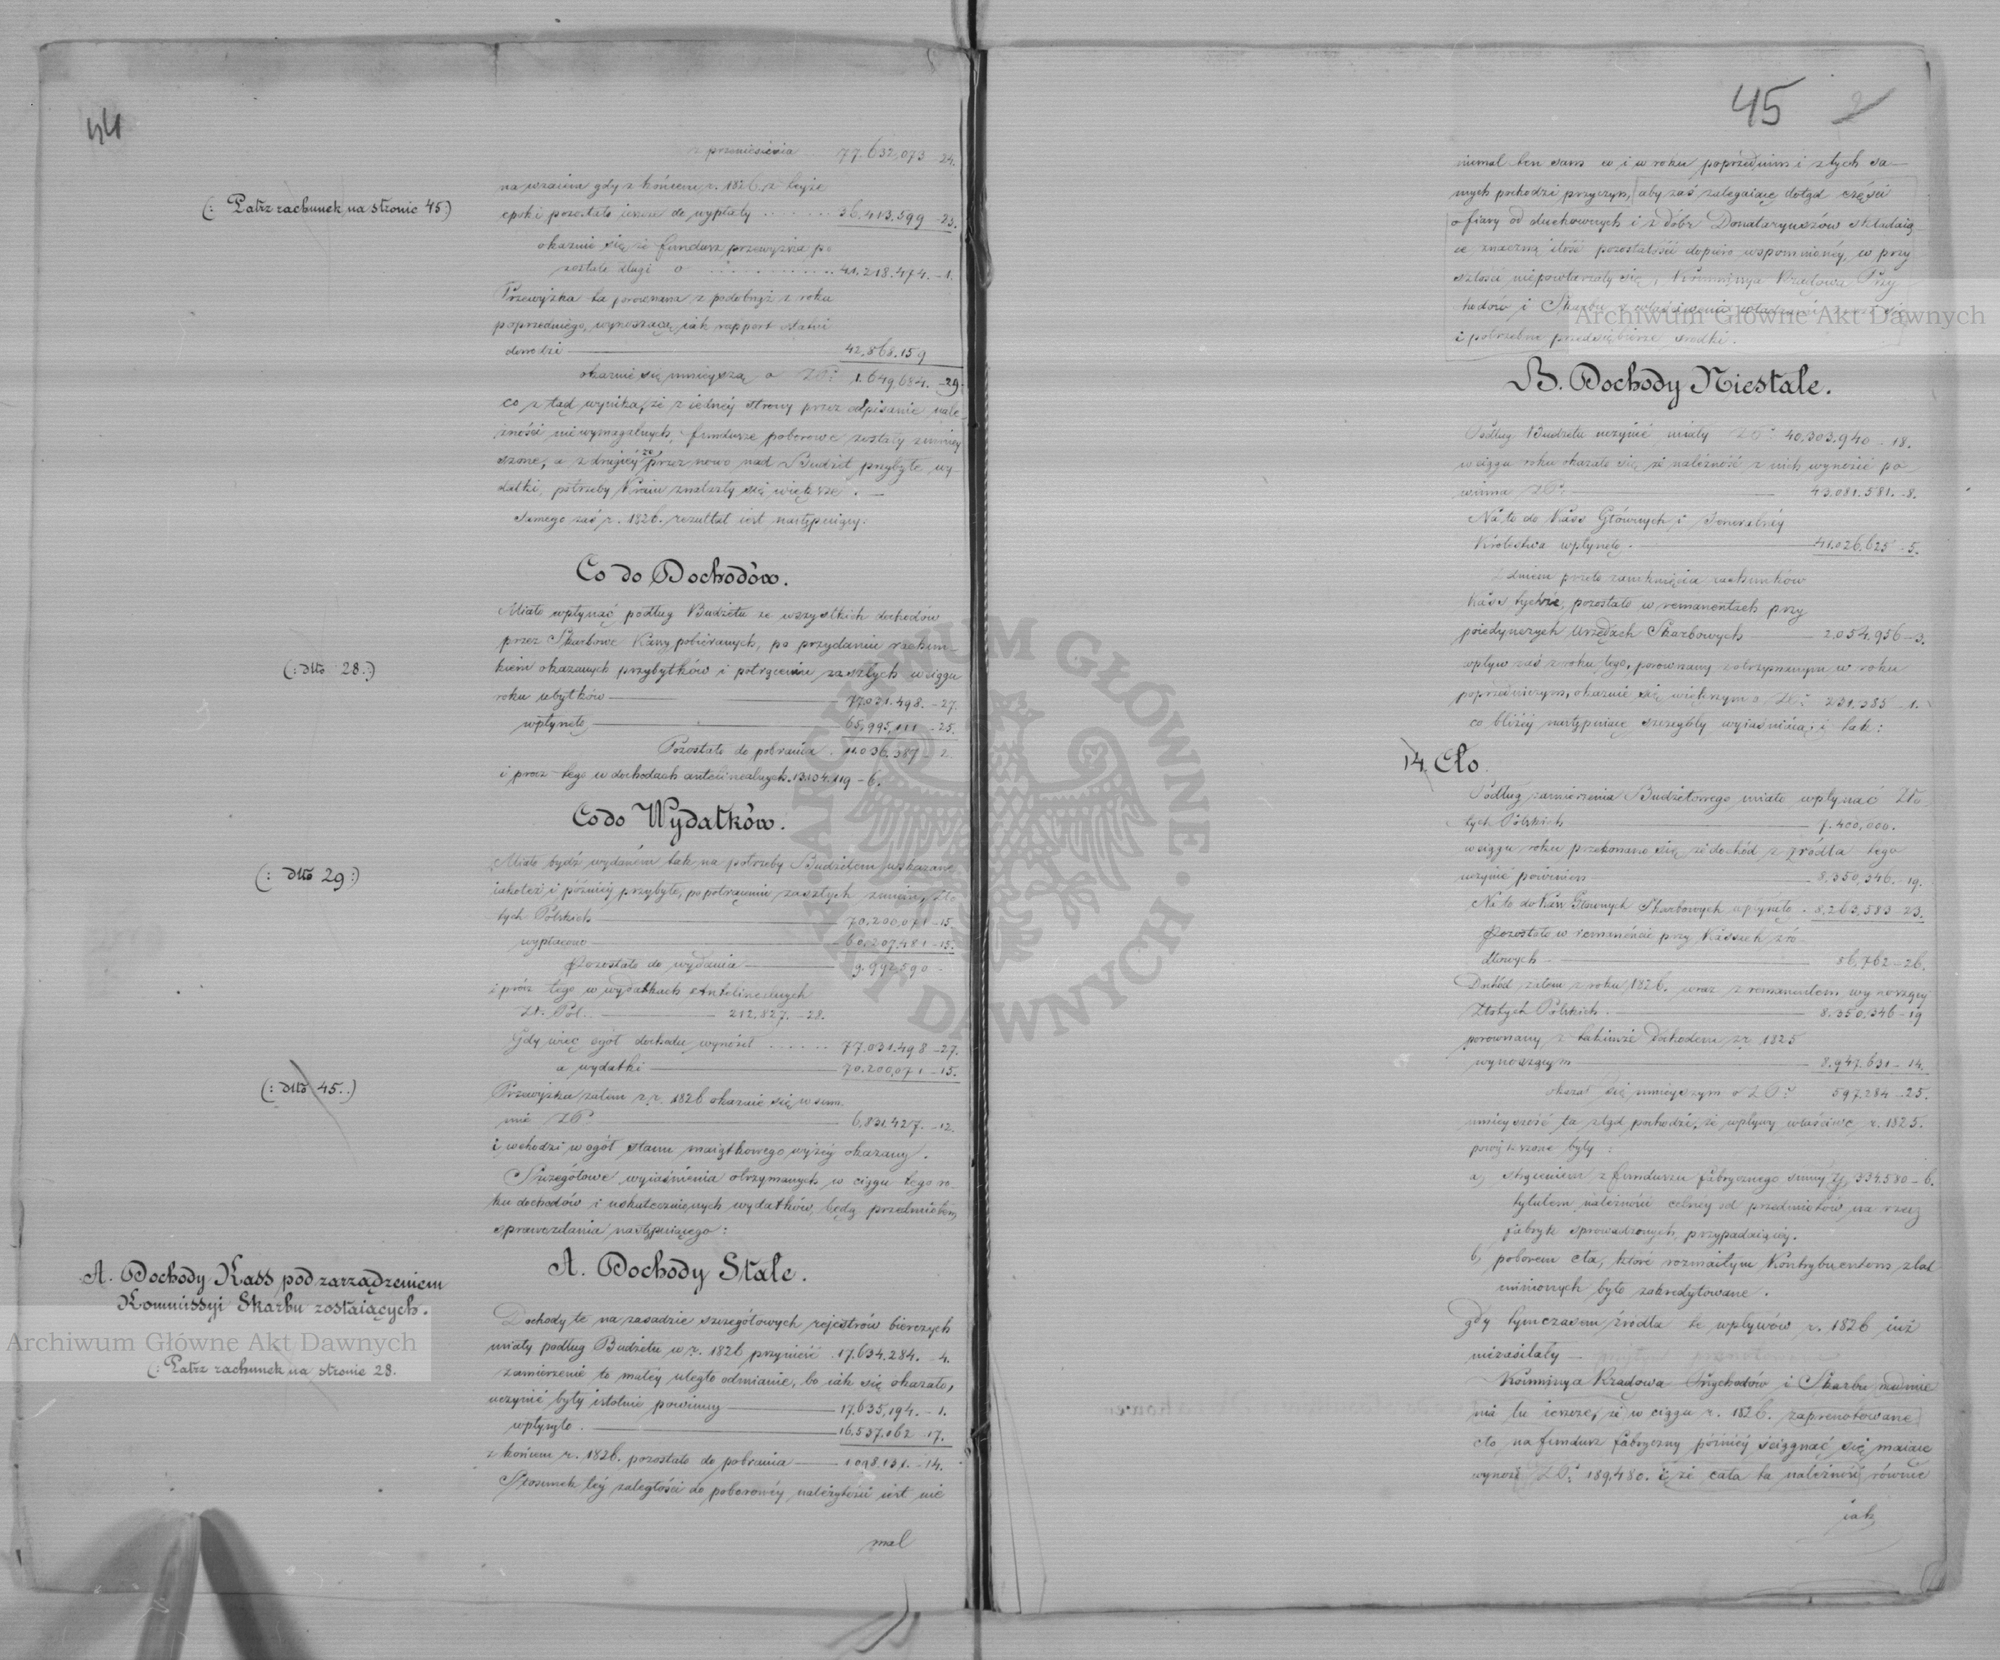 44
z przeniesienia ... 77.632,073 - 24.
na wzaiem gdy z końcem r. 1826. z teyże
(: Patrz rachunek na stronie 45:)
epoki pozostało ieszcze do wypłaty ....... 36,413,599 - 23.
okazuie się że fundusz przewyższa po
zostałe długi o ............ 41,218,474. - 1.
Przewyżka ta porównana z podobnąż z roku
poprzedniego, wynoszącą iak rapport ostatni
dowodzi 42,868,159
okazuie się mnieyszą o Zł. 1,649,684. - 29.
co z tąd wynika, że z iedney strony przez odpisanie nale-
żności niewymagalnych, fundusze poborowe zostały zmniey
szone, a z drugiey że przez nowo nad Budżet przybyłe wy-
datki, potrzeby Kraiu znalazły się większe. —
Samego zaś r. 1826. rezultat iest następuiący:
Co do Dochodów.
Miało wpłynąć podług Budżetu ze wszystkich dochodów
przez Skarbowe Kassy pobieranych, po przydaniu rachun-
(: dtto 28.:)
kiem okazanych przybytków i potrąceniu zaszłych w ciągu
roku ubytków 77,031,498. - 27.
wpłynęło 65,995,111 - 25.
Pozostało do pobrania . 11,036,387 - 2.
i procz tego w dochodach antelinealnych. 13,134,119 - 6.
Co do Wydatków.
Miało bydź wydanem tak na potrzeby Budżetem wskazane
(: dtto 29:)
iakoteż i późniey przybyłe, po potrąceniu zaszłych zmian, Zło
tych Polskich 70,200,071 - 15.
wypłacono 60,207,481 - 15.
Pozostało do wydania 9,992,590 -
i prócz tego w wydatkach antelinealnych
Zł. Pol. 212,827. - 28.
Gdy więc ogół dochodu wynosił ...... 77,031,498 - 27.
a wydatki 70,200,071 - 15.
(: dtto 45.:)
Przewyżka zatem z r. 1826 okazuie się w sum
mie Zł. 6,831,427. - 12.
i wchodzi w ogół stanu maiątkowego wyżey okazany.
Szczegółowe wyiaśnienia otrzymanych w ciągu tego ro-
ku dochodów i uskutecznionych wydatków, będą przedmiotem
sprawozdania następuiącego:
A. Dochody Kass pod zarządzeniem
Kommissyi Skarbu zostaiących.
(: Patrz rachunek na stronie 28.
A. Dochody Stałe.
Dochody te na zasadzie szczegółowych rejestrów bierczych
miały podług Budżetu w r. 1826 przynieść . 17,634,284. - 4.
zamierzenie to małey uległo odmianie, bo iak się okazało,
uczynić były istotnie powinny 17,635,194. - 1.
wpłynęło . 16,537,062 - 17.
z końcem r. 1826. pozostało do pobrania 1,098,131. - 14.
Stosunek tey zaległości do poborowey należytości iest nie
mal
45
niemal ten sam co i w roku poprzednim i z tych sa-
mych pochodzi przyczyn, aby zaś zalegaiące dotąd części
ofiary od duchownych i z dóbr Donataryuszów składaią-
ce znaczną ilość pozostałości dopiero wspomnioney, w przy
szłości niepowtarzały się, Kommissya Rządowa Przy
chodów i Skarbu
i potrzebne przedsiębierze środki.
B. Dochody Niestałe.
Podług Budżetu uczynić miały Zł. 40,303,940 - 18.
w ciągu roku okazało się że należność z nich wynosić po-
winna Zł. 43,081,581. - 8.
Na to do Kass Głównych i Jeneralney
Królestwa wpłynęło - 41,026,625 - 5.
Z dniem przeto zamknięcia rachunków
Kass tychże, pozostało w remanentach przy
poiedynczych Urzędach Skarbowych 2,054,956 - 3.
wpływ zaś z roku tego, porównany z otrzymanym w roku
poprzedniczym, okazuie się większym o Zł. 231,385 - 1.
co bliżey następuiące szczegóły wyiaśniaią; i tak:
14. Cło.
Podług zamierzenia Budżetowego miało wpłynąć Zło
tych Polskich 7,400,000.
w ciągu roku przekonano się, że dochód z zrodła tego
uczynić powinien 8,350,346. - 19.
Na to do Kass Głównych Skarbowych wpłynęło . 8,263,583 - 23.
Pozostało w remanencie przy Kassach źró-
dłowych 86,762 - 26.
Dochód zatem z roku 1826. wraz z remanentem wynoszący
Złotych Polskich . 8,350,346 - 19
porównany z takimże Dochodem z r. 1825
wynoszącym 8,947,631 - 14.
okazał się mnieyszym o Zł. 597,284 - 25.
mnieyszość ta ztąd pochodzi, że wpływy właściwe r. 1825.
powiększone były :
a) ściągnieniem z funduszu fabrycznego summy Zł. 334,580 - 6.
tytułem należności celney od przedmiotów na rzecz
fabryk sprowadzonych, przypadaiącey.
b) poborem cła, które rozmaitym Kontrybuentom z lat
minionych było zakredytowane.
gdy tymczasem źródła te wpływów r. 1826 iuż
niezasilały —
Kommissya Rządowa Przychodów i Skarbu nadmie
nia tu ieszcze, że w ciągu r. 1826. zaprenotowane
cło na fundusz fabryczny późniey ściągnąć się maiące
wynosi Zł. 189,480. i że cała ta należność równie
iak
Archiwum Główne Akt Dawnych
Archiwum Główne Akt Dawnych
ARCHIWUM GŁÓWNE AKT DAWNYCH